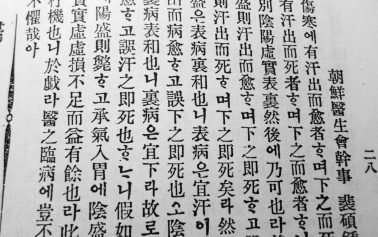 二八
朝鮮醫生會幹事 裴碩
傷寒에有汗出而愈者ᄒᆞ며下之而死
有汗出而死者ᄒᆞ며下之而愈者ᄒᆞ니
別陰陽虛實表裏然後에乃可也라
盛則汗出而愈ᄒᆞ고下之即死ᄒᆞ
則汗出而死ᄒᆞ며下之即死矣라然
盛은表病裏和也니表病은宜汗이
出而病愈ᄒᆞ고誤下之即死也오陰
裏病表和也니裏病은宜下라故로
愈ᄒᆞ고誤汗之即死也ᄒᆞᄂᆞ니假如
陽盛則斃ᄒᆞ고承氣入胃에陰盛
實實虛虛損不足而益有餘也라此
機也니於戱라醫之臨病에豈不
不懼哉아